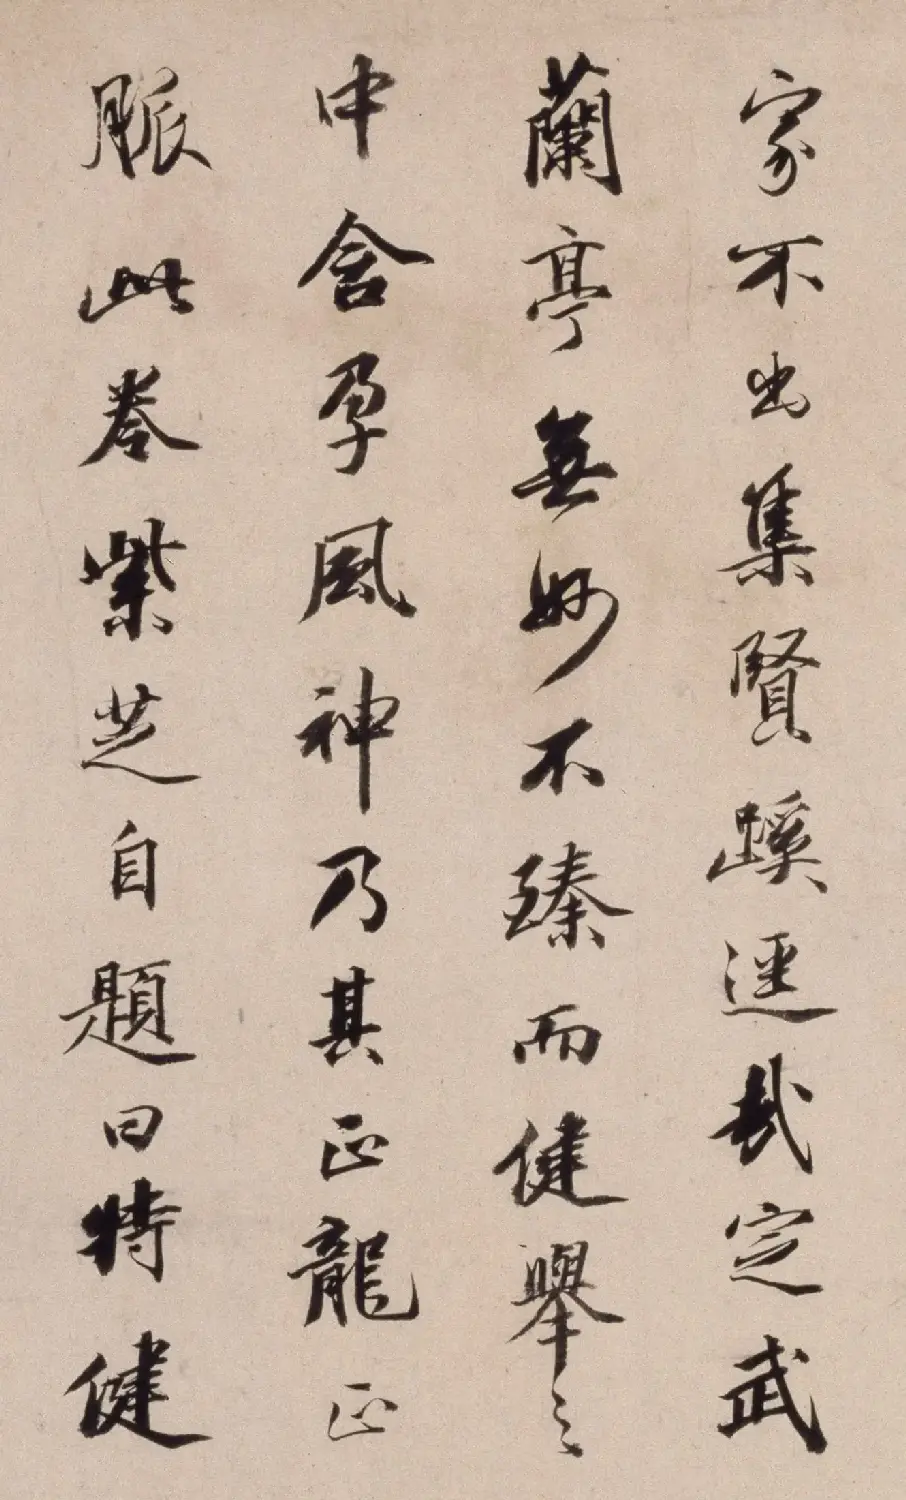 家不出集賢蹊逕哉定武
蘭亭無妙不臻而健舉〻
中含孕風神乃其正龍正
脈此卷紫芝自題曰特健